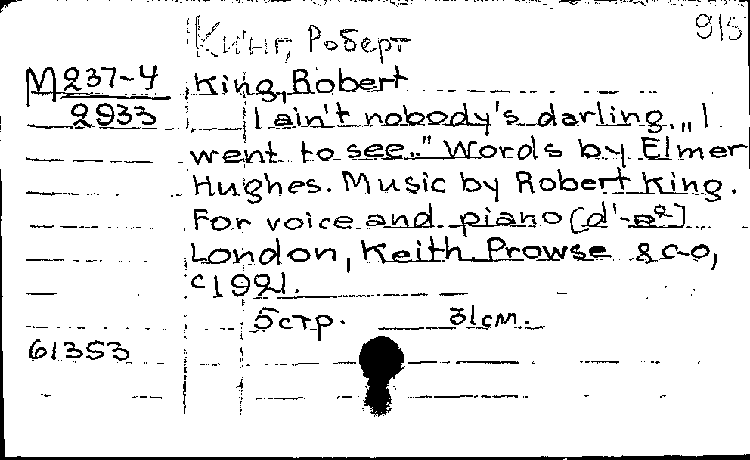 Кинг, Роберт
915
M237-4
2933
King, Robert
I ain't nobody's darling. „I
went to see." Words by Elmer
Hughes. Music by Robert King.
For voice and piano [d'-
London, Keith Prowse & C-o,
c1921.
5 стр. 31см.
61353